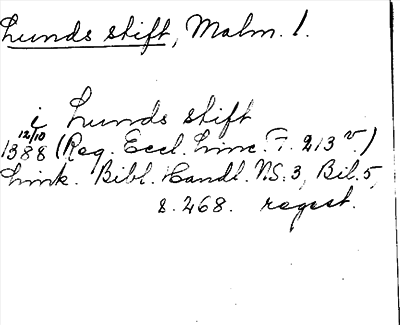 Lunds stift, Malm. l.
i Lunds stift
12/10
1388 (Reg. Eccl. Linc. F. 213 v)
Link. Bibl. Handl. N.S. 3, Bil. 5,
s. 268. regest.